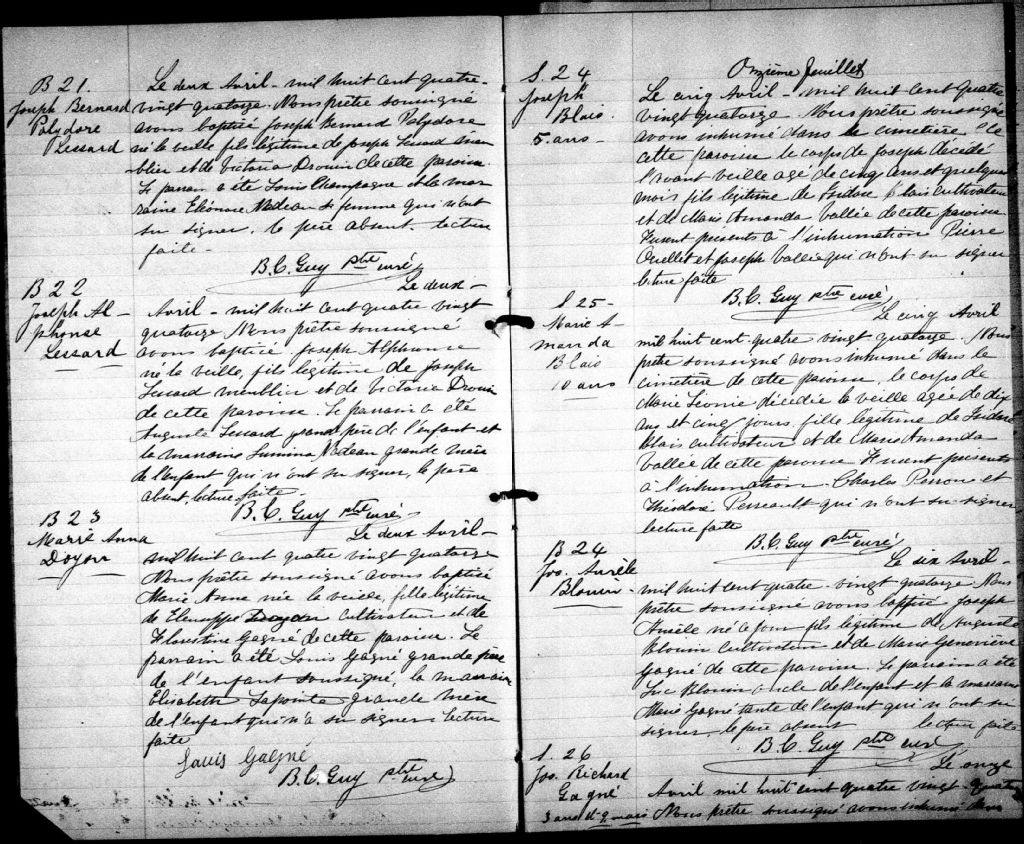 B 21.
Joseph Bernard
Polydore
Lessard
Le deux Avril - mil huit cent quatre-
vingt quatorze. Nous prêtre soussigné
avons baptisé Joseph Bernard Polydore
né la veille fils légitime de Joseph Lessard meu-
blier et de Victoria Drouin de cette paroisse.
Le parrain a été Louis Champagne et la mar
raine Eléonore Nadeau sa femme qui n'ont
su signer, le père absent. lecture
faite -
B. C. Guy ptre curé
B 22
Joseph Al-
phonse
Lessard
Le deux -
Avril - mil huit cent quatre vingt
quatorze Nous prêtre soussigné
avons baptisé Joseph Alphonse
né la veille, fils légitime de Joseph
Lessard meublier et de Victoria Drouin
de cette paroisse. Le parrain a été
Auguste Lessard grand père de l'enfant et
la marraine Lumina Nadeau grande mère
de l'enfant qui n'ont su signer, le père
absent, lecture faite -
B. C. Guy ptre curé
B 23
Marie Anna
Doyon
Le deux Avril -
mil huit cent quatre vingt quatorze
Nous prêtre soussigné avons baptisé
Marie Anne née la veille, fille légitime
de Doyon cultivateur et de
Florestine Gagné de cette paroisse. Le
parrain a été Louis Gagné grand père
de l'enfant soussigné, la marraine
Elisabeth Lapointe grande mère
de l'enfant qui n'a su signer. Lecture
faite
Louis Gagné
B. C. Guy ptre curé
Onzième feuillet
S. 24
Joseph
Blais.
5 ans -
Le cinq Avril - mil huit cent quatre
vingt quatorze. Nous prêtre soussigné
avons inhumé dans le cimetière de
cette paroisse le corps de Joseph décédé
l'avant veille agé de cinq ans et quelques
mois fils légitime de Isidore Blais cultivateur
et de Marie Amanda Vallée de cette paroisse
Furent présents à l'inhumation Pierre
Ouellet et Joseph Vallée qui n'ont su signer
lecture faite
B. C. Guy ptre curé
S. 25 -
Marie A-
manda
Blais
10 ans
Le cinq Avril
mil huit cent quatre vingt quatorze. Nous
prêtre soussigné avons inhumé dans le
cimetière de cette paroisse, le corps de
Marie Léonie décédée la veille agée de dix
ans et cinq jours, fille légitime de Isidore
Blais cultivateur et de Marie Amanda
Vallée de cette paroisse Furent présents
à l'inhumation. Charles et
Théodore Perreault qui n'ont su signer
lecture faite
B. C. Guy ptre curé
B 24
Jos. Aurèle
Blouin
Le six Avril -
mil huit cent quatre vingt quatorze Nous
prêtre soussigné avons baptisé Joseph
Aurèle né ce jour fils légitime de Auguste
Blouin cultivateur et de Marie Geneviève
Gagné de cette paroisse. Le parrain a été
Luc Blouin oncle de l'enfant et la marraine
Marie Gagné tante de l'enfant qui n'ont su
signer, le père absent lecture faite
B. C. Guy ptre curé
S. 26
Jos. Richard
Gagné
3 ans et 2 mois
Le onze
Avril mil huit cent quatre vingt quatorze
Nous prêtre soussigné avons inhumé dans